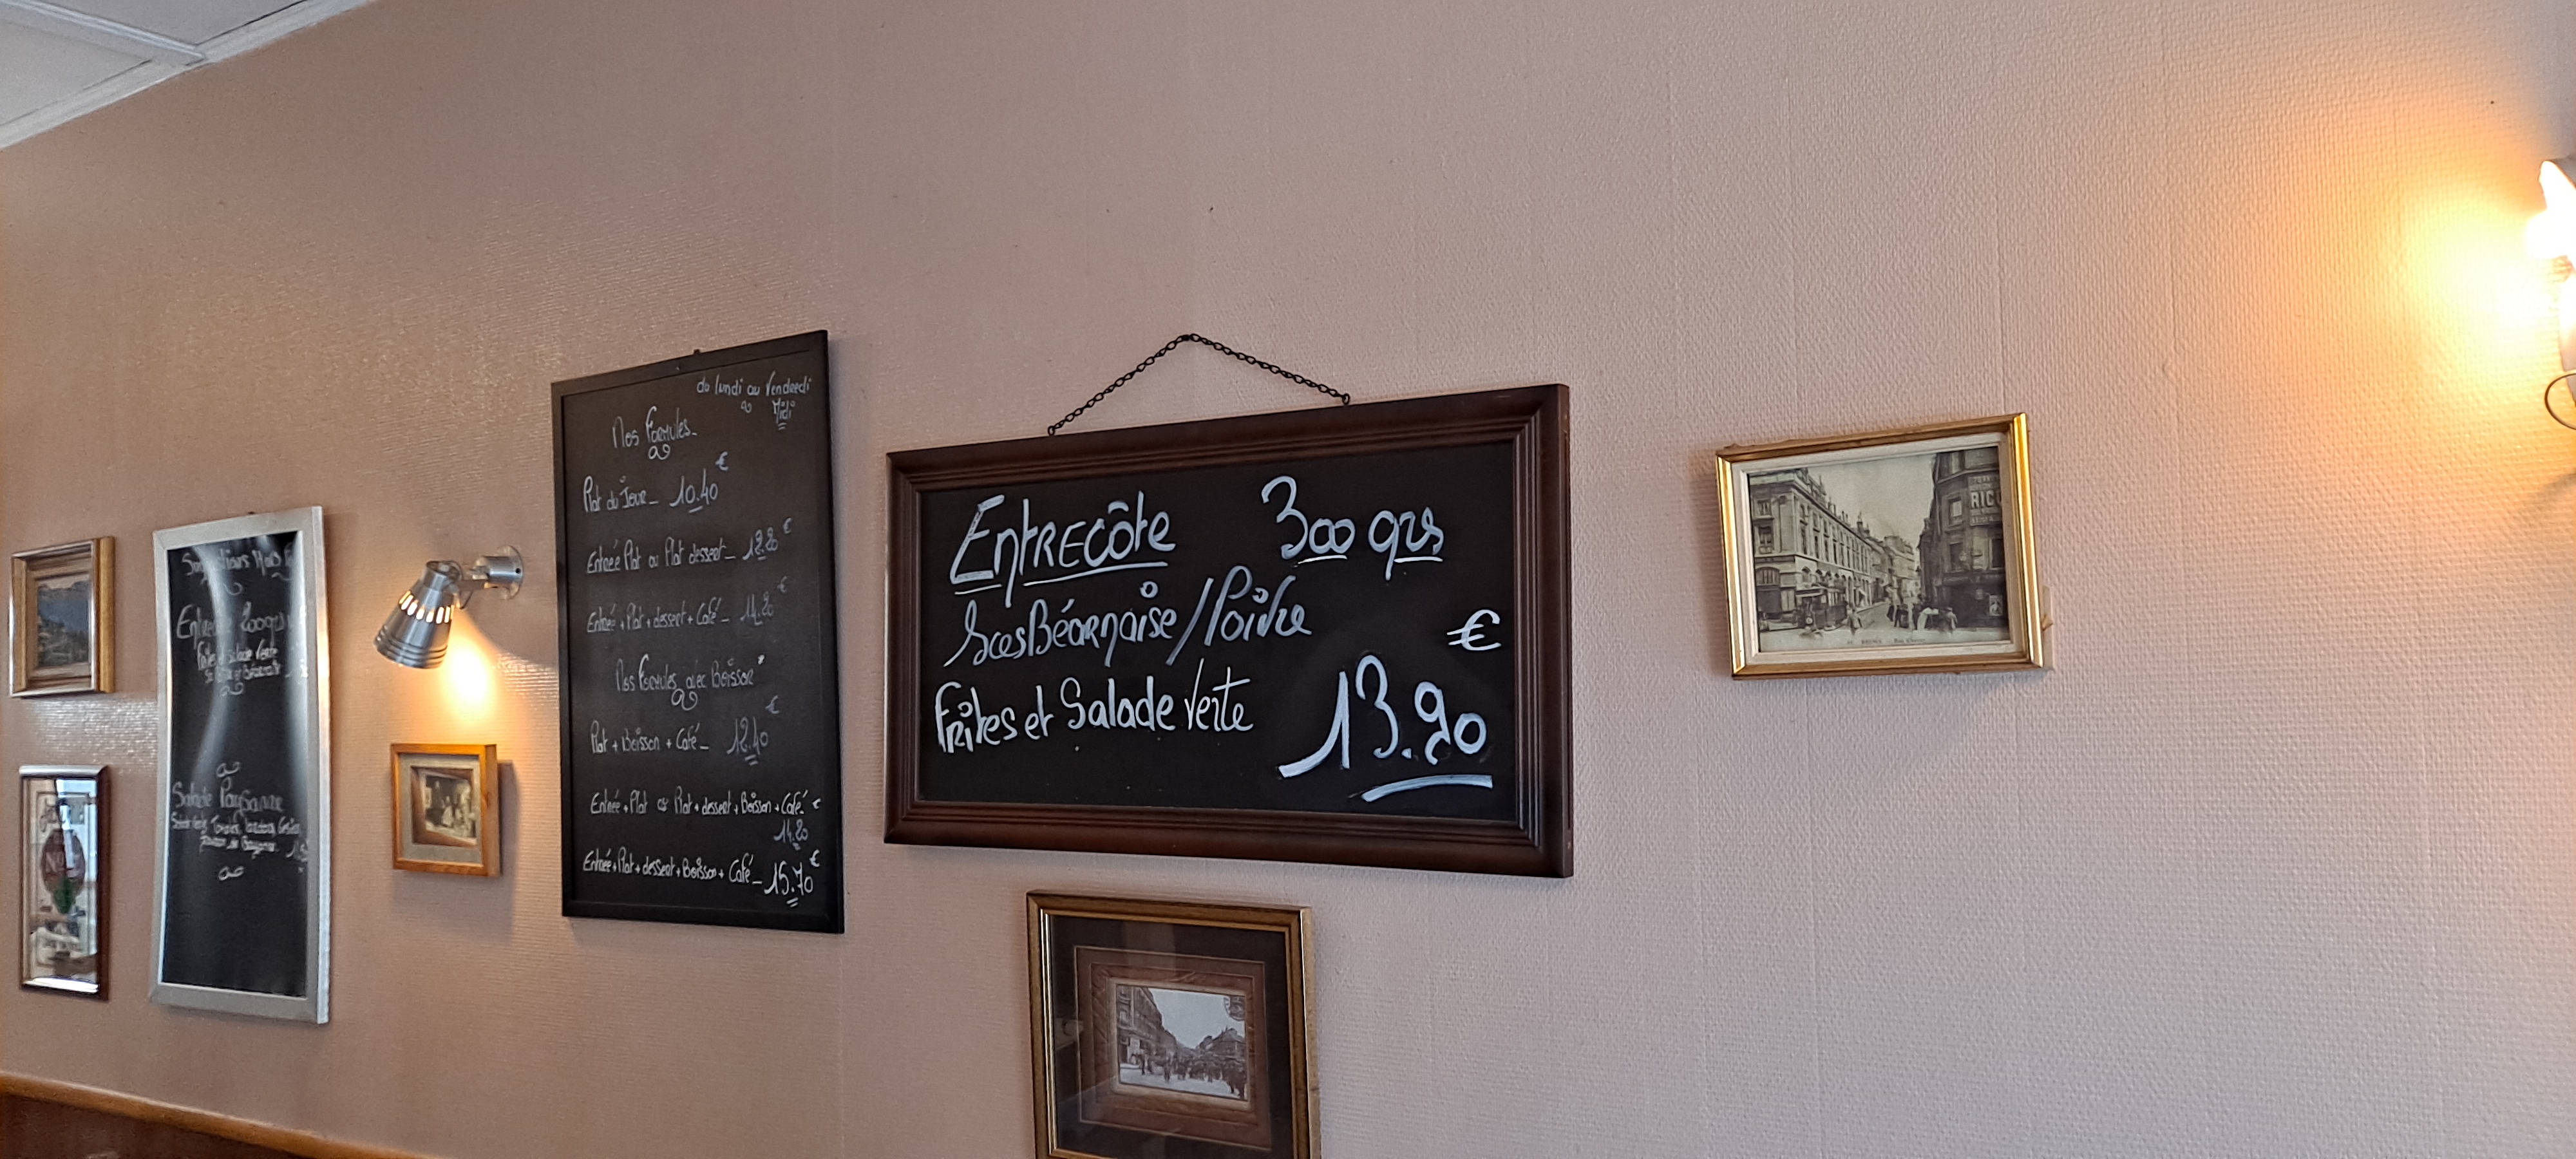 Suggestions Mois
Entrecôte 200grs
Frites et Salade Verte
Salade Paysanne
du lundi au Vendredi
Midi
Nos Formules_
Plat du Jour_ 10.40 €
Entrée Plat ou Plat dessert_ €
Entrée + Plat + dessert + Café_ 14.20 €
Nos Formules avec Boisson
Plat + Boisson + Café_ 12.40 €
Entrée + Plat ou Plat + dessert + Boisson + Café €
14.20
Entrée + Plat + dessert + Boisson + Café_ 15.70 €
Entrecôte 300 grs
Sces Béarnaise / Poivre
Frites et Salade Verte 13.90 €
RIC